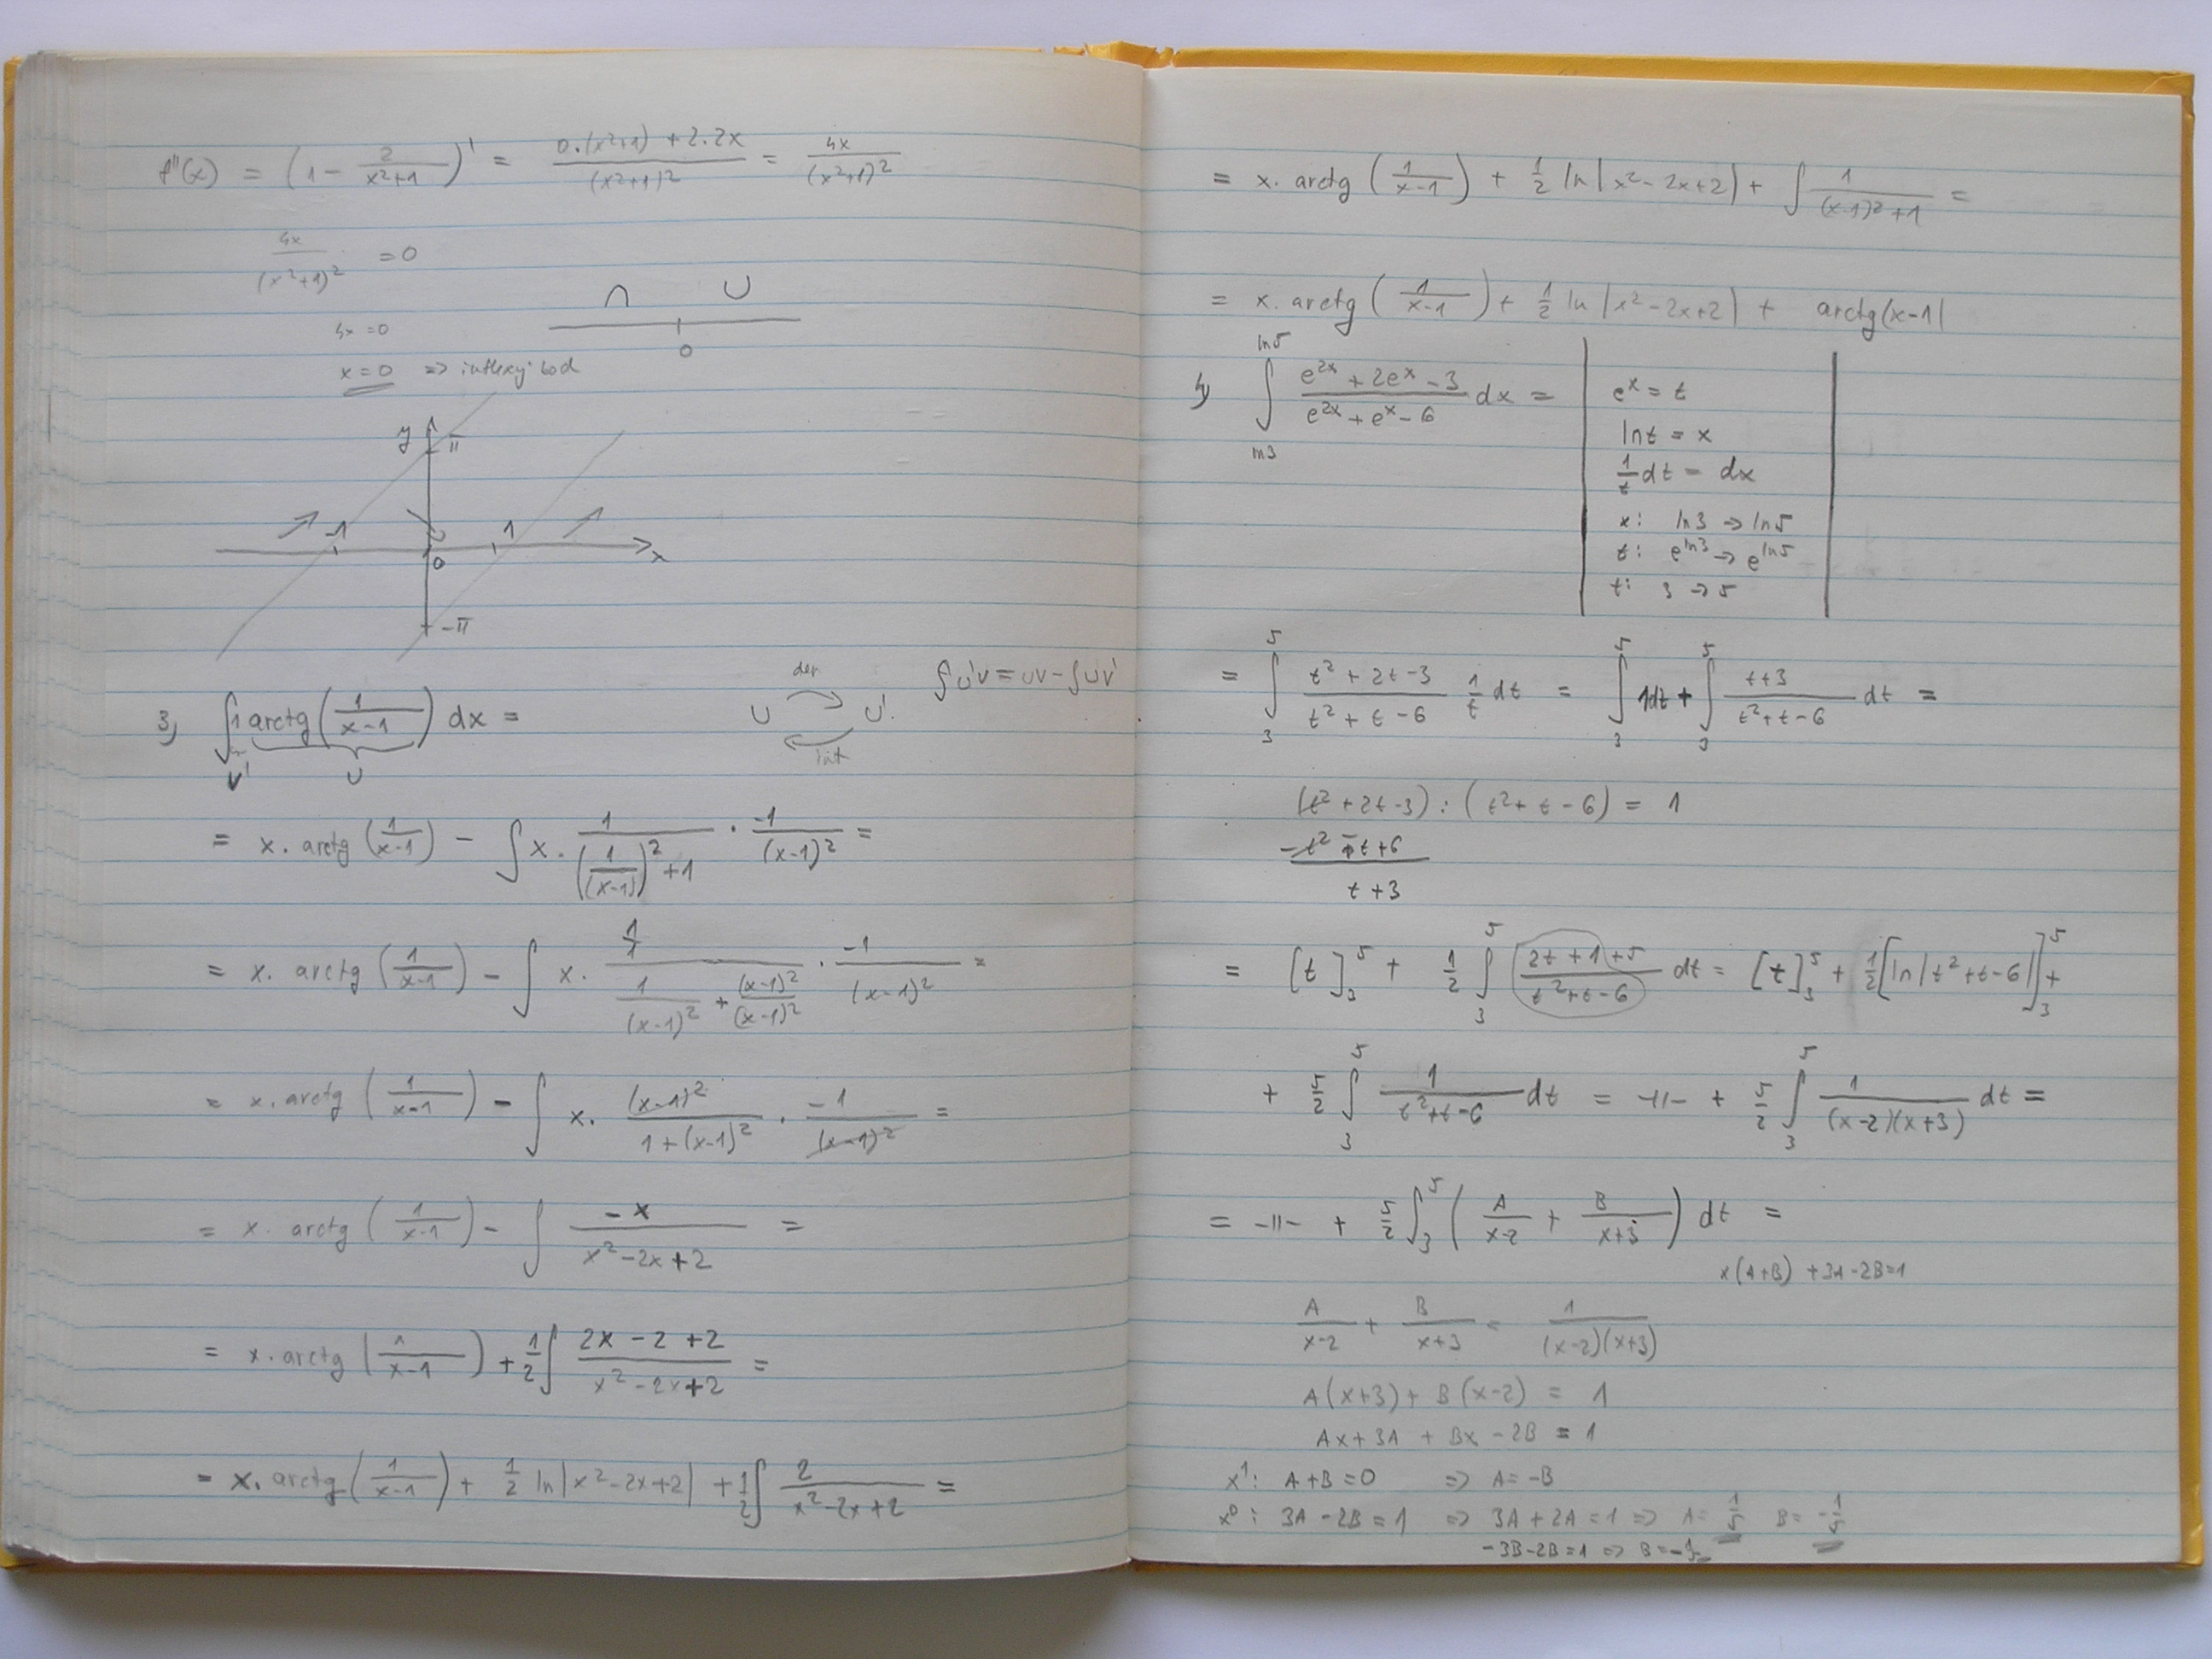 f''(x) = (1 - 2/(x²+1))' = (0.(x²+1) + 2.2x)/(x²+1)² = 4x/(x²+1)²
4x/(x²+1)² = 0
∩ ∪
0
4x = 0
x = 0 => inflexy. bod
y π
-1 1
0 x
-π
der
∫u'v = uv - ∫uv'
U U'.
int
3) ∫1 arctg(1/(x-1)) dx =
v' U
= x. arctg(1/(x-1)) - ∫x. 1/((1/(x-1))²+1) . -1/(x-1)² =
= x. arctg(1/(x-1)) - ∫ x. (1/1)/(1/(x-1)² + (x-1)²/(x-1)²) . -1/(x-1)² =
= x. arctg(1/(x-1)) - ∫ x. (x-1)²/(1+(x-1)²) . -1/(x-1)² =
= x. arctg(1/(x-1)) - ∫ -x/(x²-2x+2) =
= x. arctg(1/(x-1)) + 1/2 ∫ (2x-2+2)/(x²-2x+2) =
= x. arctg(1/(x-1)) + 1/2 ln|x²-2x+2| + 1/2 ∫ 2/(x²-2x+2) =
= x. arctg(1/(x-1)) + 1/2 ln|x²-2x+2| + ∫ 1/((x-1)²+1) =
= x. arctg(1/(x-1)) + 1/2 ln|x²-2x+2| + arctg(x-1|
4) ∫_{ln3}^{ln5} (e^{2x} + 2e^x - 3)/(e^{2x} + e^x - 6) dx =
e^x = t
ln t = x
1/t dt = dx
x: ln3 → ln5
t: e^{ln3} → e^{ln5}
t: 3 → 5
= ∫_3^5 (t² + 2t - 3)/(t² + t - 6) 1/t dt = ∫_3^5 1dt + ∫_3^5 (t+3)/(t²+t-6) dt =
(t² + 2t - 3) : (t² + t - 6) = 1
-t² - t + 6
t + 3
= [t]_3^5 + 1/2 ∫_3^5 (2t+1+5)/(t²+t-6) dt = [t]_3^5 + 1/2 [ln|t²+t-6|]_3^5 +
+ 5/2 ∫_3^5 1/(t²+t-6) dt = -||- + 5/2 ∫_3^5 1/((x-2)(x+3)) dt =
= -||- + 5/2 ∫_3^5 (A/(x-2) + B/(x+3)) dt =
x(A+B) + 3A - 2B = 1
A/(x-2) + B/(x+3) = 1/((x-2)(x+3))
A(x+3) + B(x-2) = 1
Ax + 3A + Bx - 2B = 1
x¹: A + B = 0 => A = -B
x⁰: 3A - 2B = 1 => 3A + 2A = 1 => A = 1/5 B = -1/5
-3B - 2B = 1 => B = -1/5